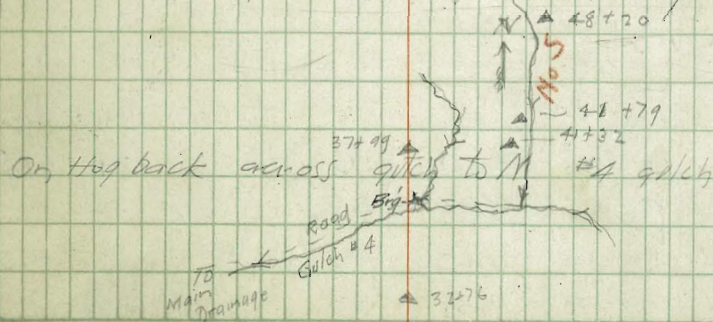 N
48+20
No 5
41+79
41+32
37+99
On Hog back across gulch to N #4 gulch
Brg
Road
Gulch #4
To
Main
Drainage
32+76